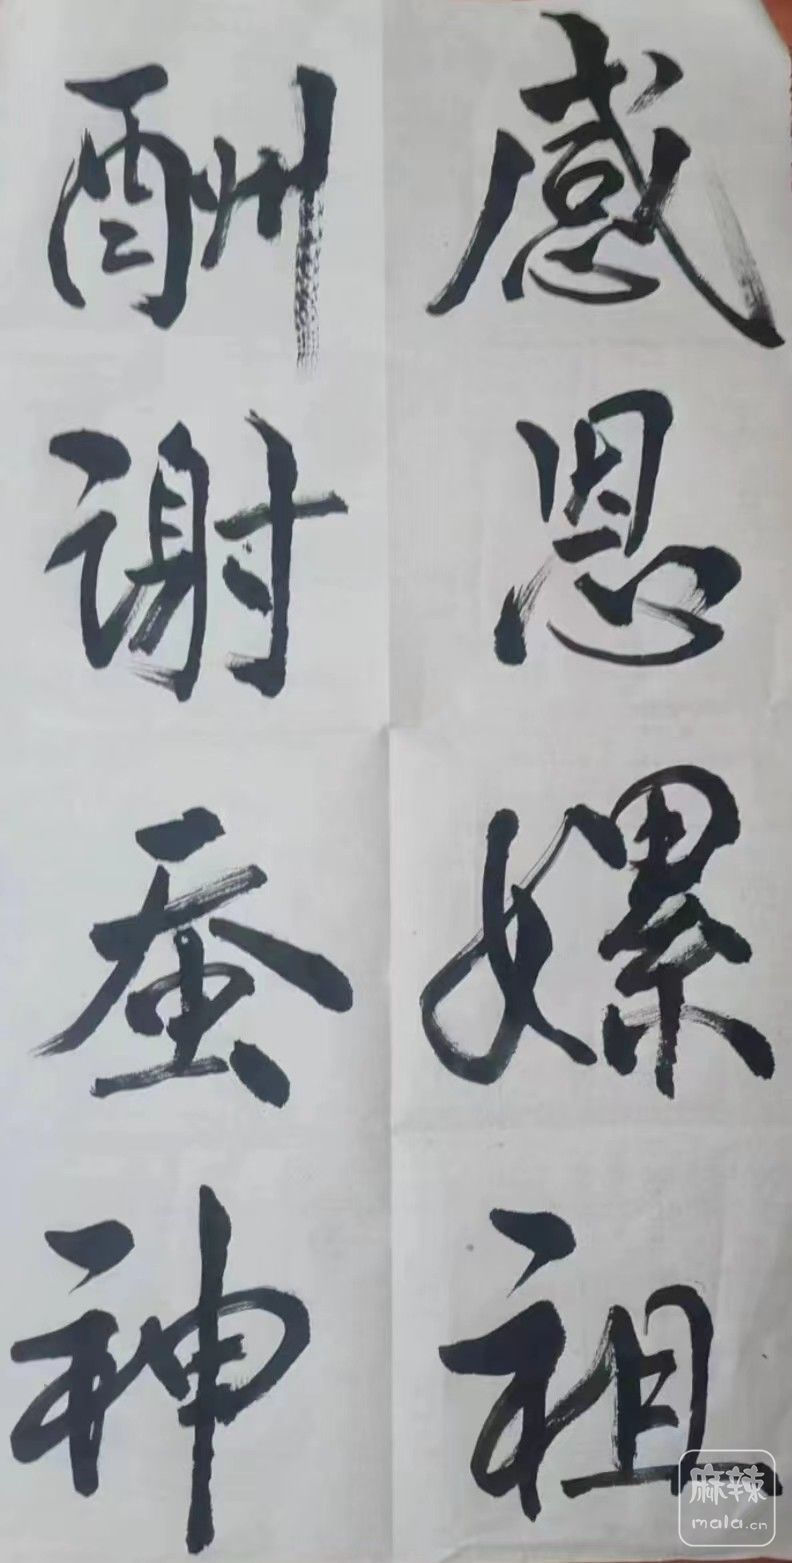 感恩嫘祖
酬谢蚕神
麻辣
mala.cn